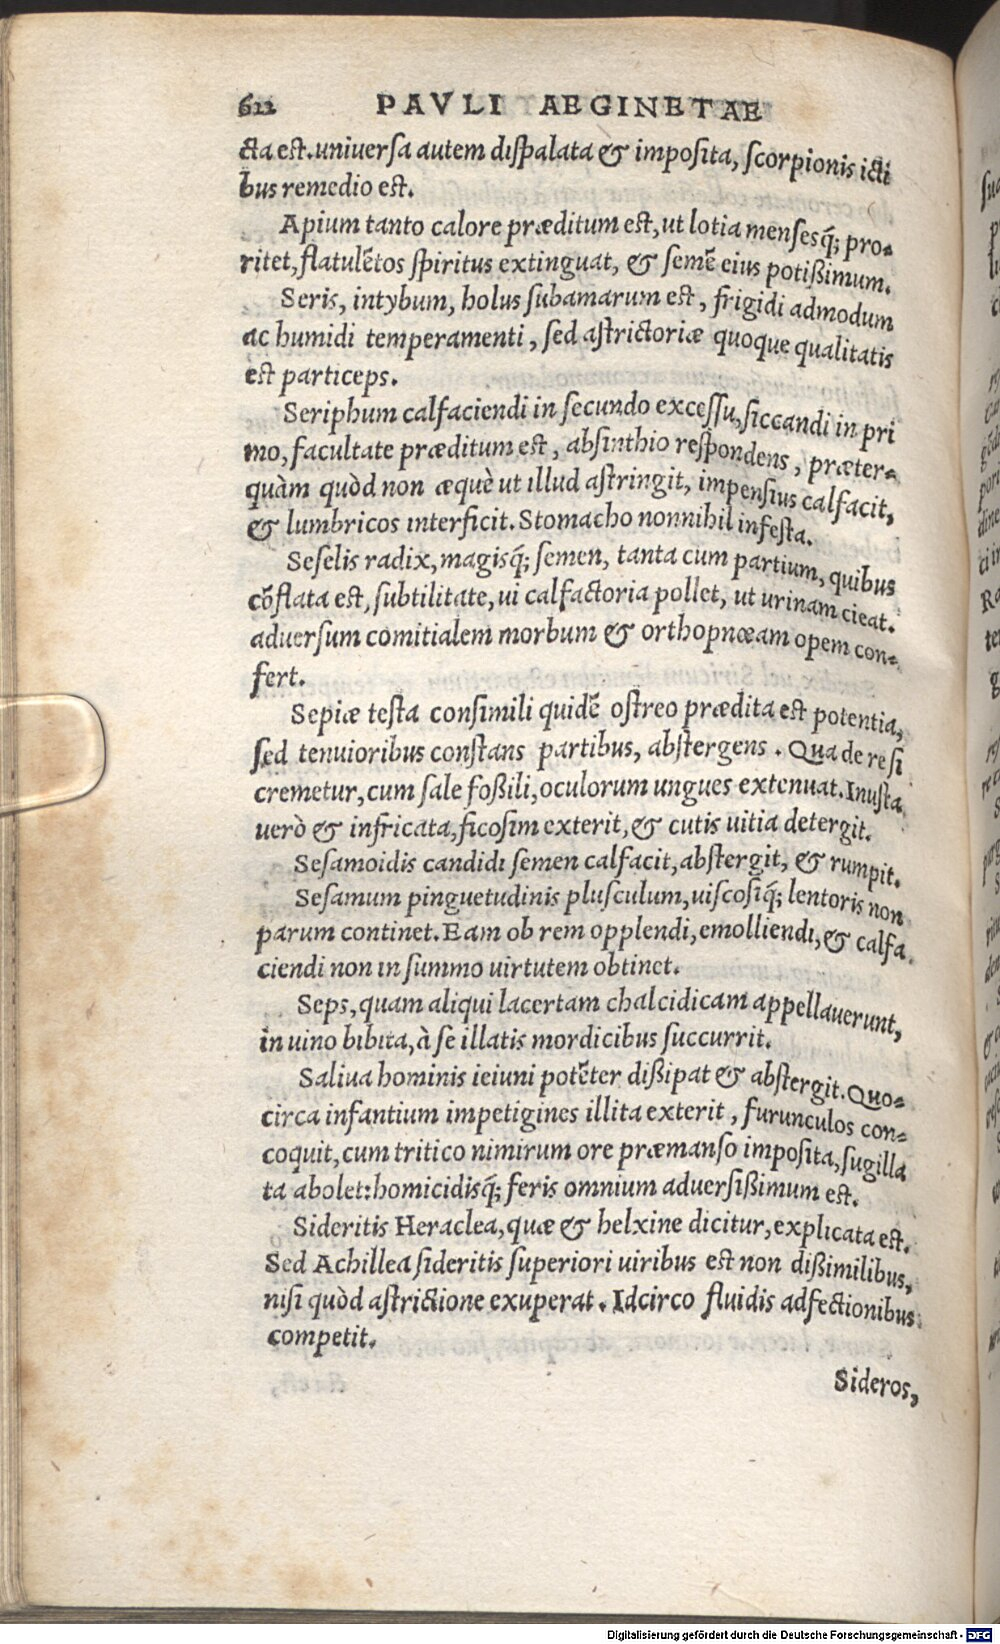 622 PAVLI AEGINETAE
cta est. uniuersa autem dispalata & imposita, scorpionis icti
bus remedio est.
Apium tanto calore præditum est, ut lotia mensesq́; pro-
ritet, flatulẽtos spiritus extinguat, & semẽ eius potißimum.
Seris, intybum, holus subamarum est, frigidi admodum
ac humidi temperamenti, sed astrictoriæ quoque qualitatis
est particeps.
Seriphum calfaciendi in secundo excessu, siccandi in pri
mo, facultate præditum est, absinthio respondens, præter-
quàm quòd non æquè ut illud astringit, impensius calfacit,
& lumbricos interficit. Stomacho nonnihil infesta.
Seselis radix, magisq́; semen, tanta cum partium, quibus
cõflata est, subtilitate, ui calfactoria pollet, ut urinam cieat.
aduersum comitialem morbum & orthopnœam opem con-
fert.
Sepiæ testa consimili quidẽ ostreo prædita est potentia,
sed tenuioribus constans partibus, abstergens. Qua de re si
cremetur, cum sale foßili, oculorum ungues extenuat. Inusta
uerò & infricata, ficosim exterit, & cutis uitia detergit.
Sesamoidis candidi semen calfacit, abstergit, & rumpit.
Sesamum pinguetudinis plusculum, uiscosiq́; lentoris non
parum continet. Eam ob rem opplendi, emolliendi, & calfa
ciendi non in summo uirtutem obtinet.
Seps, quam aliqui lacertam chalcidicam appellauerunt,
in uino bibita, à se illatis mordicibus succurrit.
Saliua hominis ieiuni potẽter dißipat & abstergit. Quo-
circa infantium impetigines illita exterit, furunculos con-
coquit, cum tritico nimirum ore præmanso imposita, sugilla
ta abolet: homicidisq́; feris omnium aduersißimum est.
Sideritis Heraclea, quæ & helxine dicitur, explicata est.
Sed Achillea sideritis superiori uiribus est non dißimilibus,
nisi quòd astrictione exuperat. Idcirco fluidis adfectionibus
competit.
Sideros,
Digitalisierung gefördert durch die Deutsche Forschungsgemeinschaft - DFG